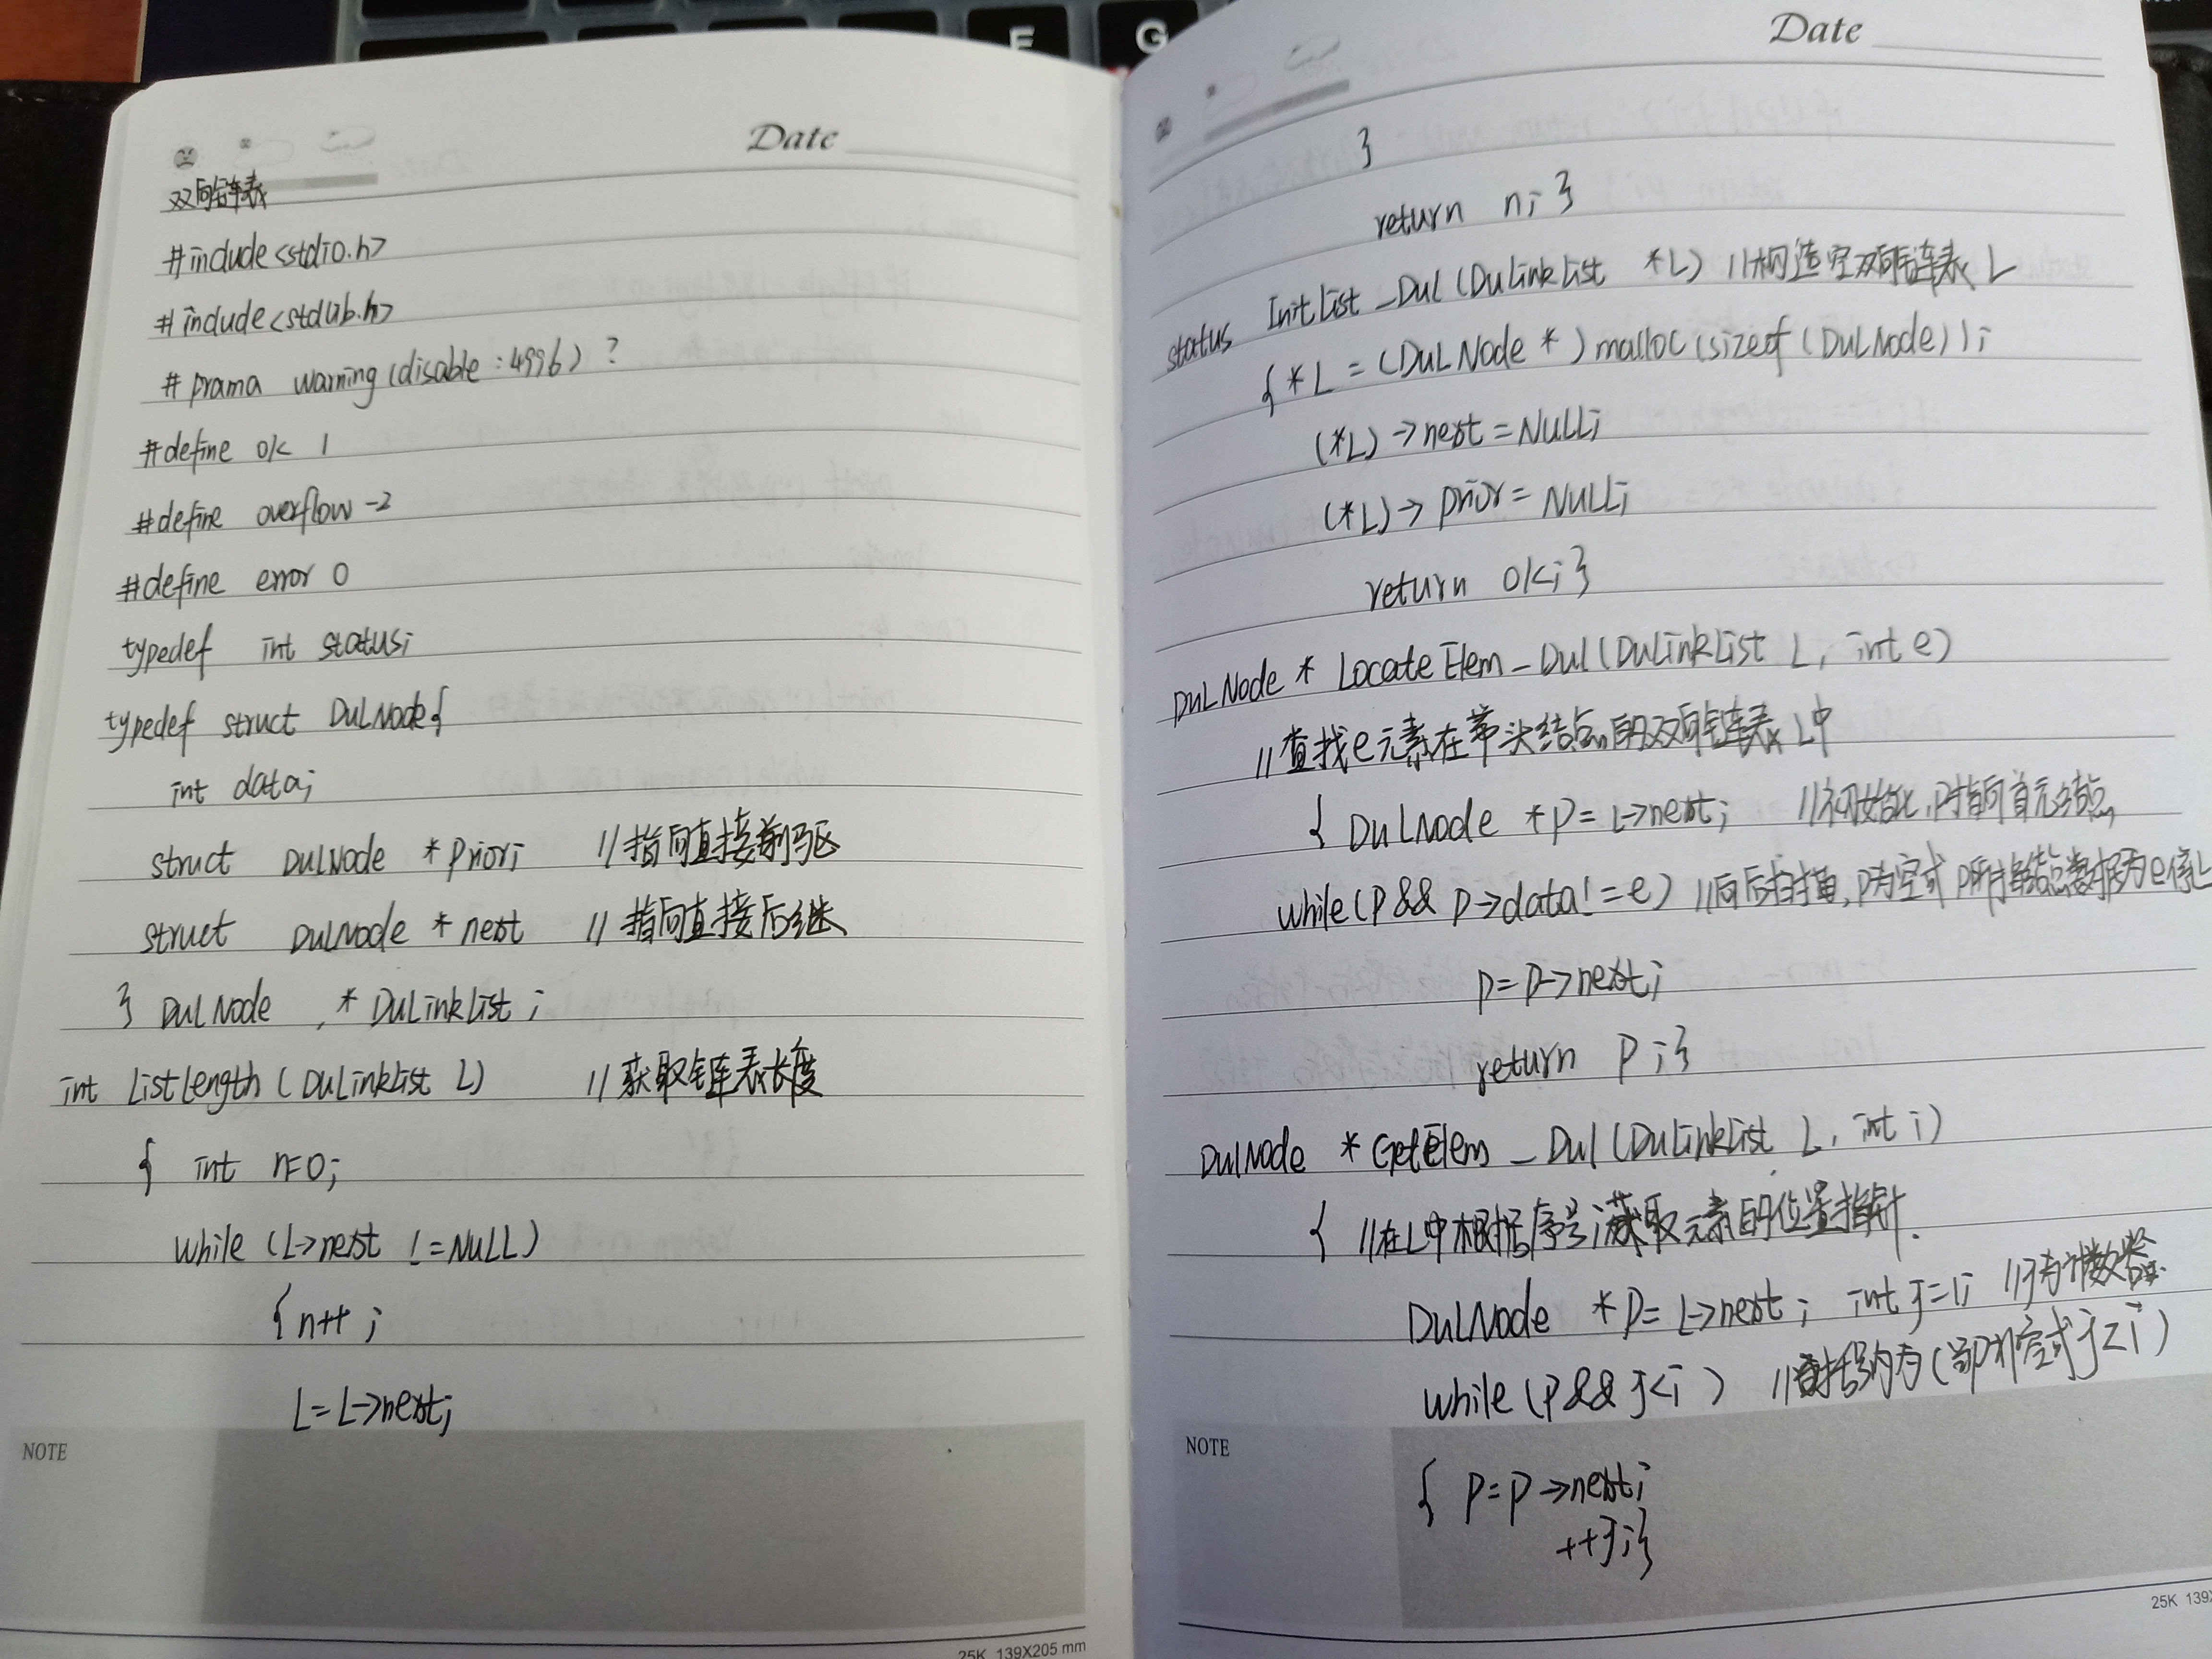 Date
双向链表
#include<stdio.h>
#include<stdlib.h>
#prama warning(disable:4996)?
#define ok 1
#define overflow -2
#define error 0
typedef int status;
typedef struct DulNode{
int data;
struct DulNode *prior; //指向直接前驱
struct DulNode *next //指向直接后继
} DulNode , * DuLinkList ;
int ListLength(DuLinkList L) //获取链表长度
{ int n=0;
while (L->next !=NULL)
{n++;
L=L->next;
NOTE
25K 139X205 mm
Date
}
return n;}
status InitList_Dul(DuLinkList *L) //构造空双向链表L
{*L=(DuLNode *)malloc(sizeof(DuLNode));
(*L)->next=NULL;
(*L)->prior=NULL;
return ok;}
DuLNode * LocateElem_Dul(DuLinkList L, int e)
//查找e元素在带头结点的双向链表L中
{ DuLNode *p=L->next; //初始化,p指向首元结点
while(p&& p->data!=e) //向后扫描,p为空或p所指结点数据为e停止
p=p->next;
return p;}
DulNode *GetElem_Dul(DuLinkList L, int i)
{ //在L中根据序号i获取元素的位置指针.
DuLNode *p=L->next; int j=1; //j为计数器
while(p&&j<i) //
{ p=p->next;
++j;}
NOTE
25K 139